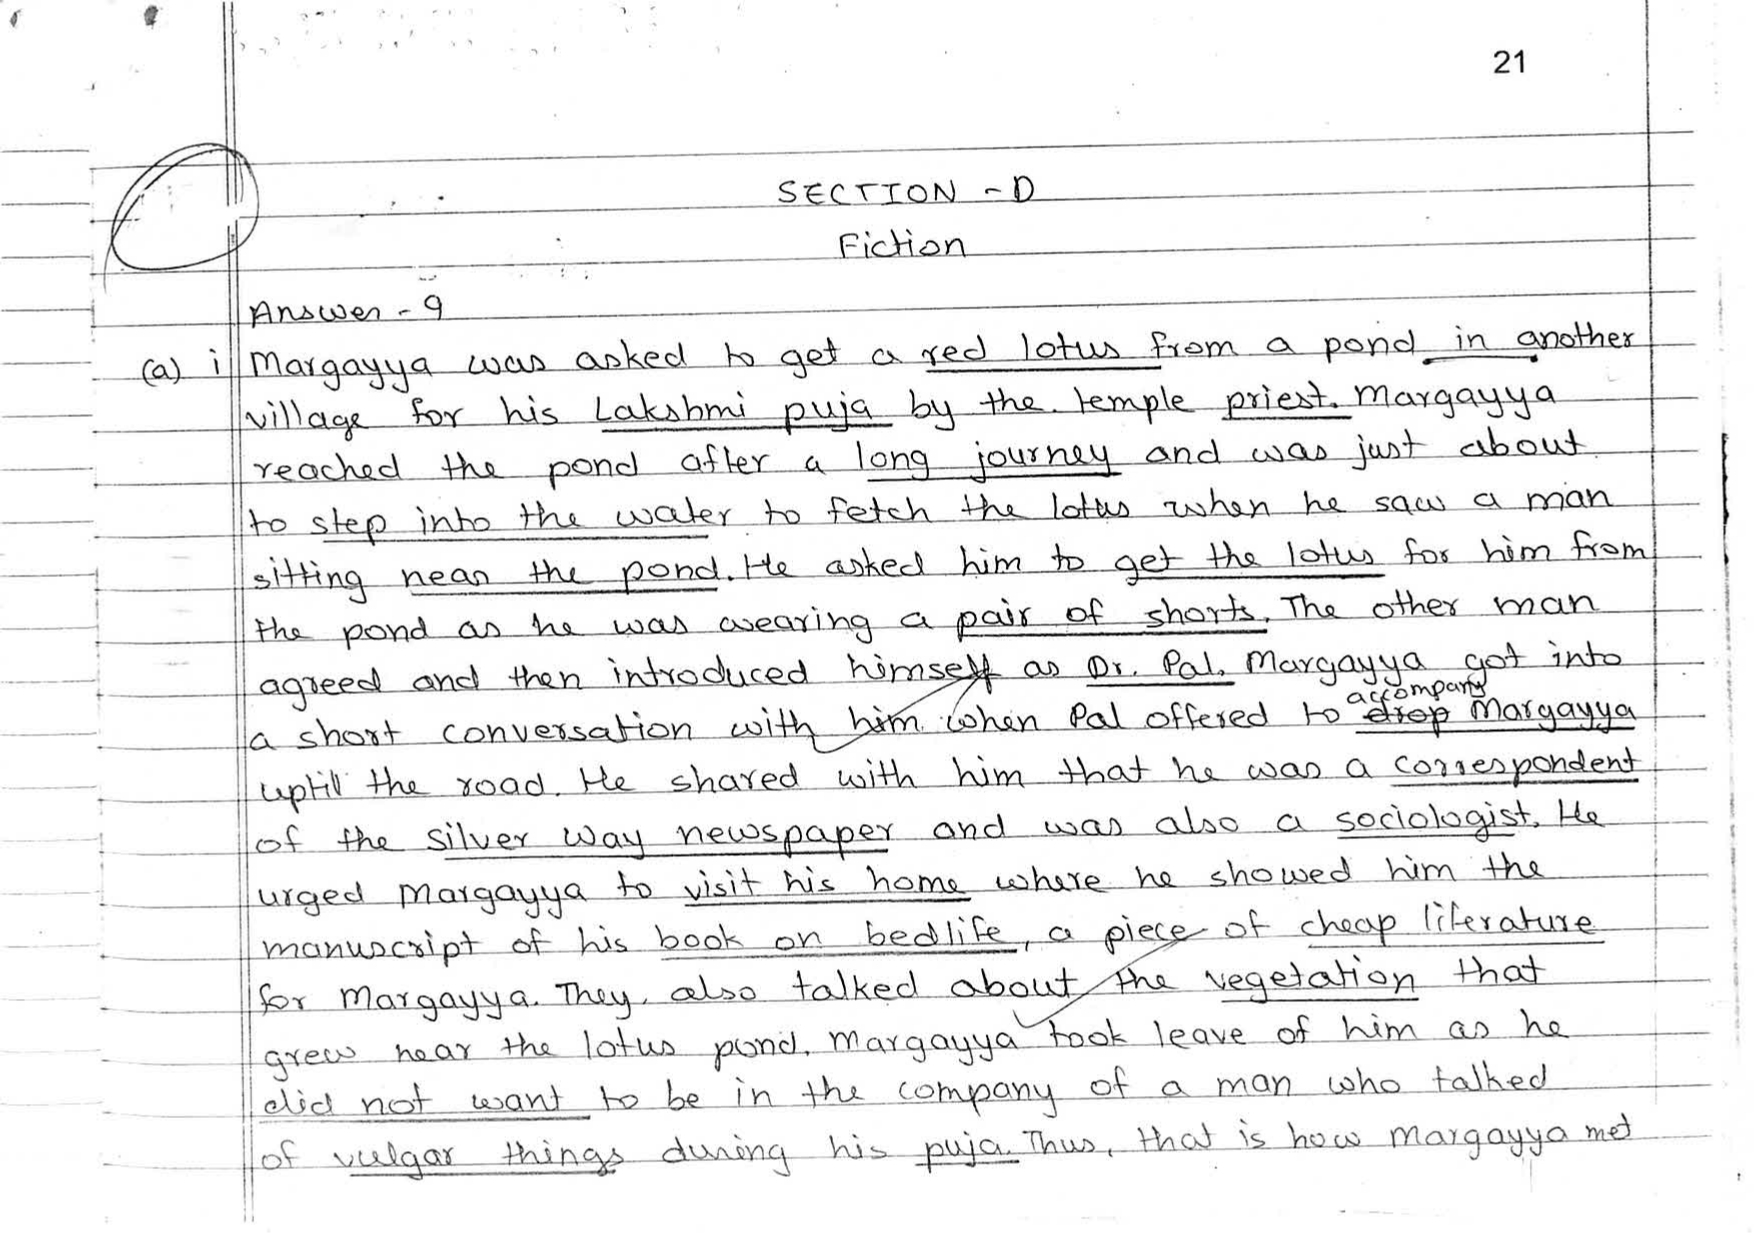 21
SECTION - D
Fiction
Answer - 9
(a) i Margayya was asked to get a red lotus from a pond in another
village for his Lakshmi puja by the temple priest. Margayya
reached the pond after a long journey and was just about
to step into the water to fetch the lotus when he saw a man
sitting near the pond. He asked him to get the lotus for him from
the pond as he was wearing a pair of shorts. The other man
agreed and then introduced himself as Dr. Pal. Margayya got into
a short conversation with him when Pal offered to drop accompany Margayya
uptil the road. He shared with him that he was a correspondent
of the silver way newspaper and was also a sociologist. He
urged Margayya to visit his home where he showed him the
manuscript of his book on bedlife, a piece of cheap literature
for Margayya. They also talked about the vegetation that
grew near the lotus pond. Margayya took leave of him as he
did not want to be in the company of a man who talked
of vulgar things during his puja. Thus, that is how Margayya met